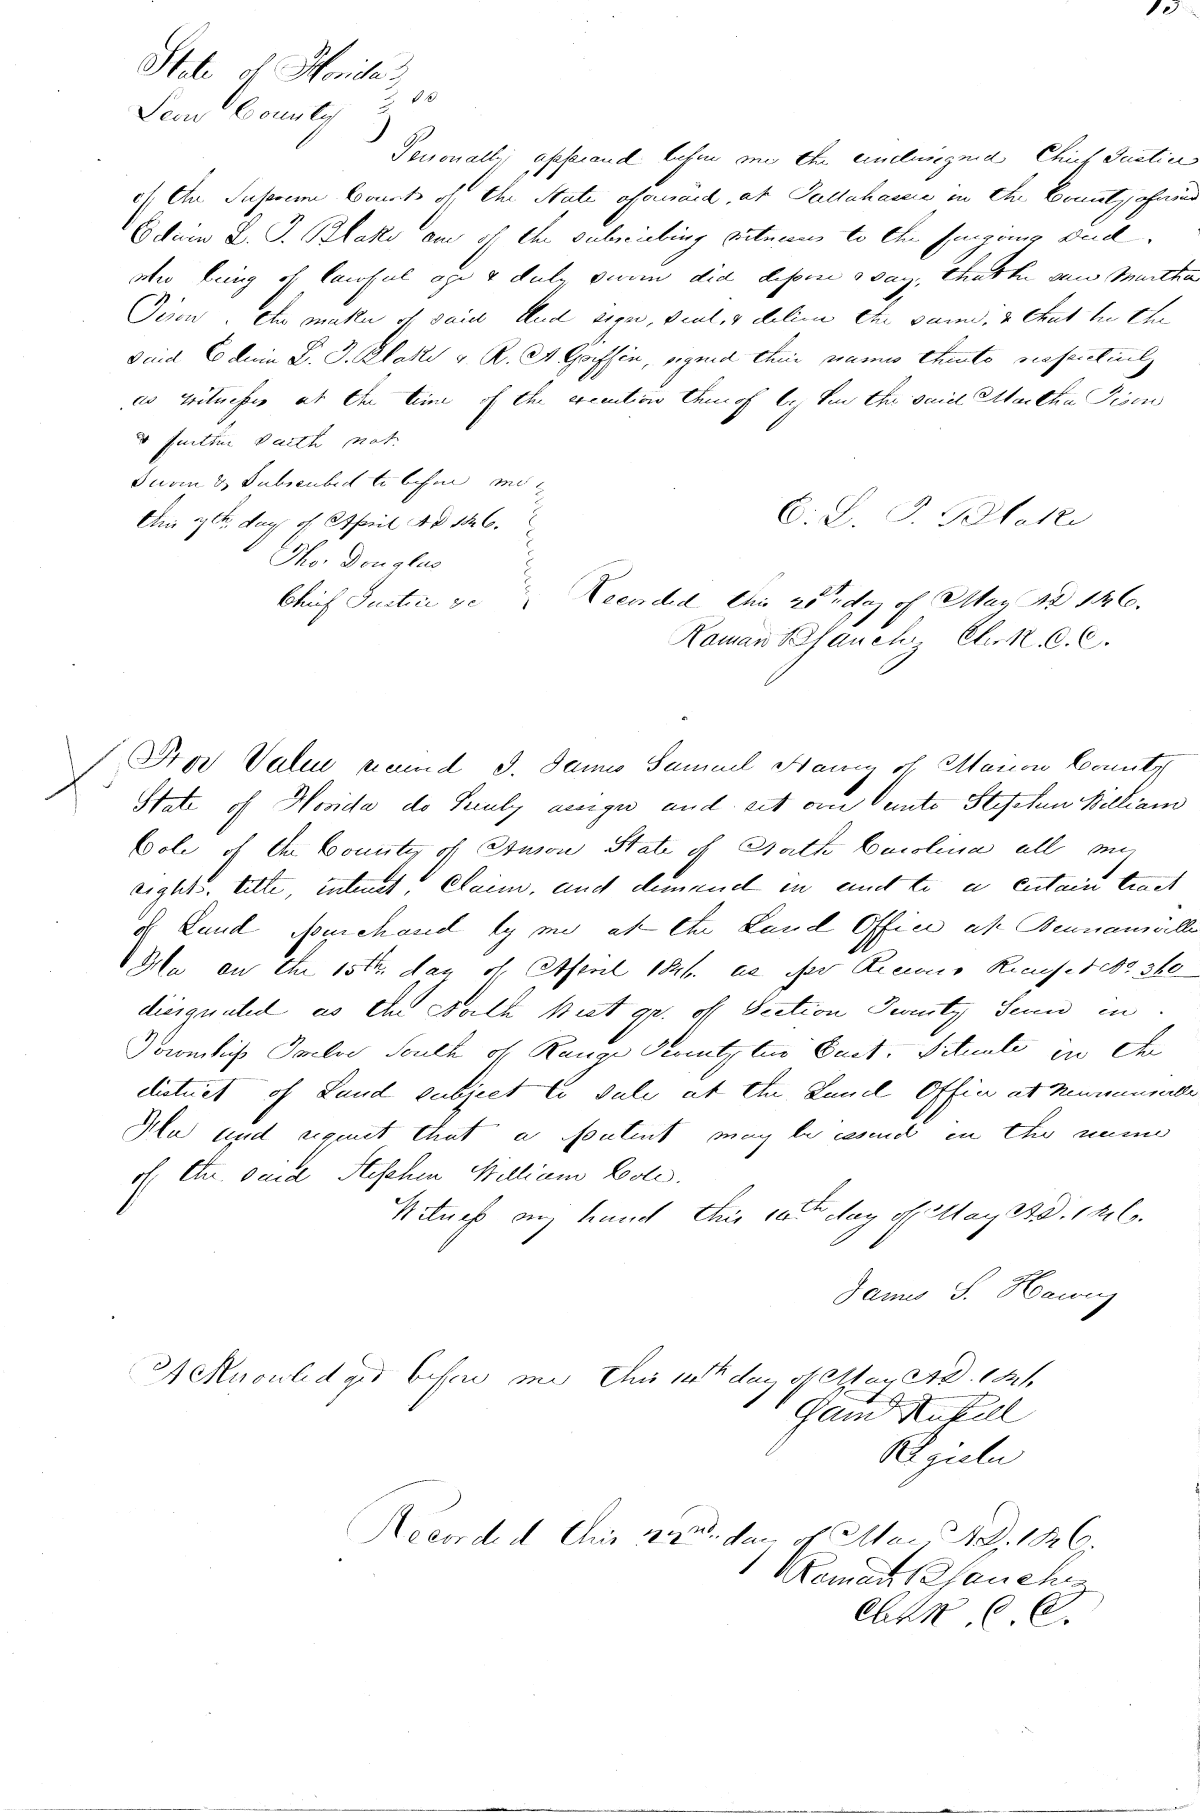 State of Florida
Leon County } ss
Personally appeared before me the undersigned Chief Justice
of the Supreme Courts of the State aforesaid, at Tallahassee in the County aforesaid
Edwin L. T. Blake one of the subscribing witnesses to the foregoing deed,
who being of lawful age & duly sworn did depose & say, that he saw Martha
Pison, the maker of said deed sign, seal, & deliver the same, & that he the
said Edwin L. T. Blake & R. A. Griffin, signed their names thereto respectively
as witnesses at the time of the execution thereof by her the said Martha Pison
& further saith not.
Sworn & Subscribed to before me
this 7th day of April AD 1846.
E. L. T. Blake
Tho. Douglas
Chief Justice &c
Recorded this day of May AD 1846.
Roman B Sanchez Clerk. C. C.
For Value received I, James Samuel Harvey of Marion County
State of Florida do hereby assign and set over unto Stephen William
Cole of the County of Anson State of North Carolina all my
right, title, interest, Claim, and demand in and to a certain tract
of Land purchased by me at the Land Office at Newnansville
Fla on the 15th day of April 1846 as per Receipt No 360
designated as the North West qr. of Section Twenty Seven in
Township Twelve South of Range Twenty two East. Situate in the
district of Land subject to sale at the Land Office at Newnansville
Fla and request that a patent may be issued in the name
of the said Stephen William Cole.
Witness my hand this 14th day of May AD. 1846.
James S. Harvey
Acknowledged before me this 14th day of May AD. 1846
Russell
Register
Recorded this 22nd day of May AD. 1846.
Roman B Sanchez
Clerk. C. C.